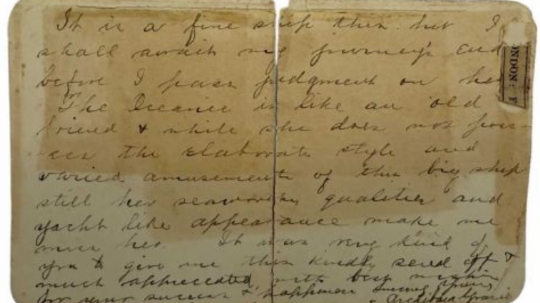 It is a fine ship this but I
shall await my journey's end
before I pass judgment on her
The Oceanic is like an old
friend & while she does not poss-
-ess the elaborate style and
varied amusements of this big ship
still her seaworthy qualities and
yacht like appearance make me
miss her. It was very kind of
you to give me this kindly send off &
much appreciated, with best wishes
for your success & happiness
Archibald
ONDON